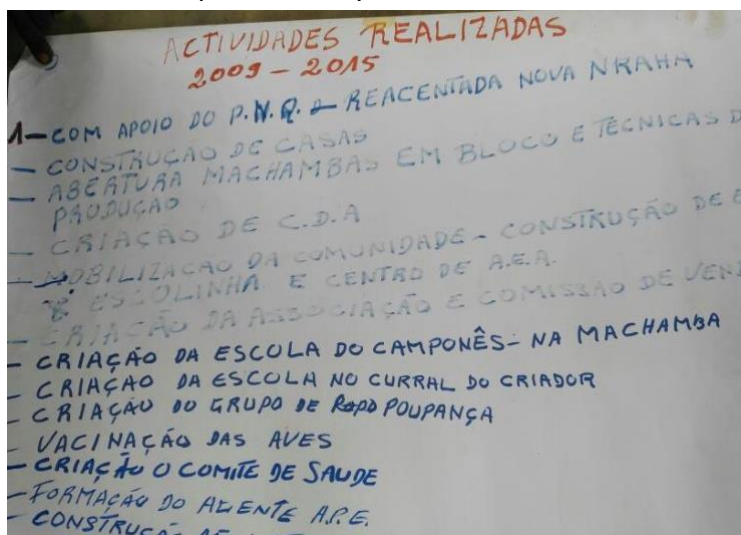 ACTIVIDADES REALIZADAS
2009 - 2015
1- COM APOIO DO P.N.Q. REACENTADA NOVA NRAHA
- CONSTRUÇAO DE CASAS
- ABERTURA MACHAMBAS EM BLOCO E TECNICAS D
PRODUÇAO
- CRIAÇAO DE C.D.A
- MOBILIZACAO DA COMUNIDADE - CONSTRUÇÃO DE E
ESCOLINHA E CENTRO DE A.E.A.
- CRIACÃO DA ASSOCIAÇÃO E COMISSÃO DE VEN
- CRIAÇÃO DA ESCOLA DO CAMPONÊS - NA MACHAMBA
- CRIAÇÃO DA ESCOLA NO CURRAL DO CRIADOR
- CRIAÇÃO DO GRUPO DE POUPANÇA
- VACINAÇÃO DAS AVES
- CRIAÇÃO O COMITE DE SAUDE
- FORMAÇÃO DO AGENTE A.P.E.
- CONSTRUÇÃO